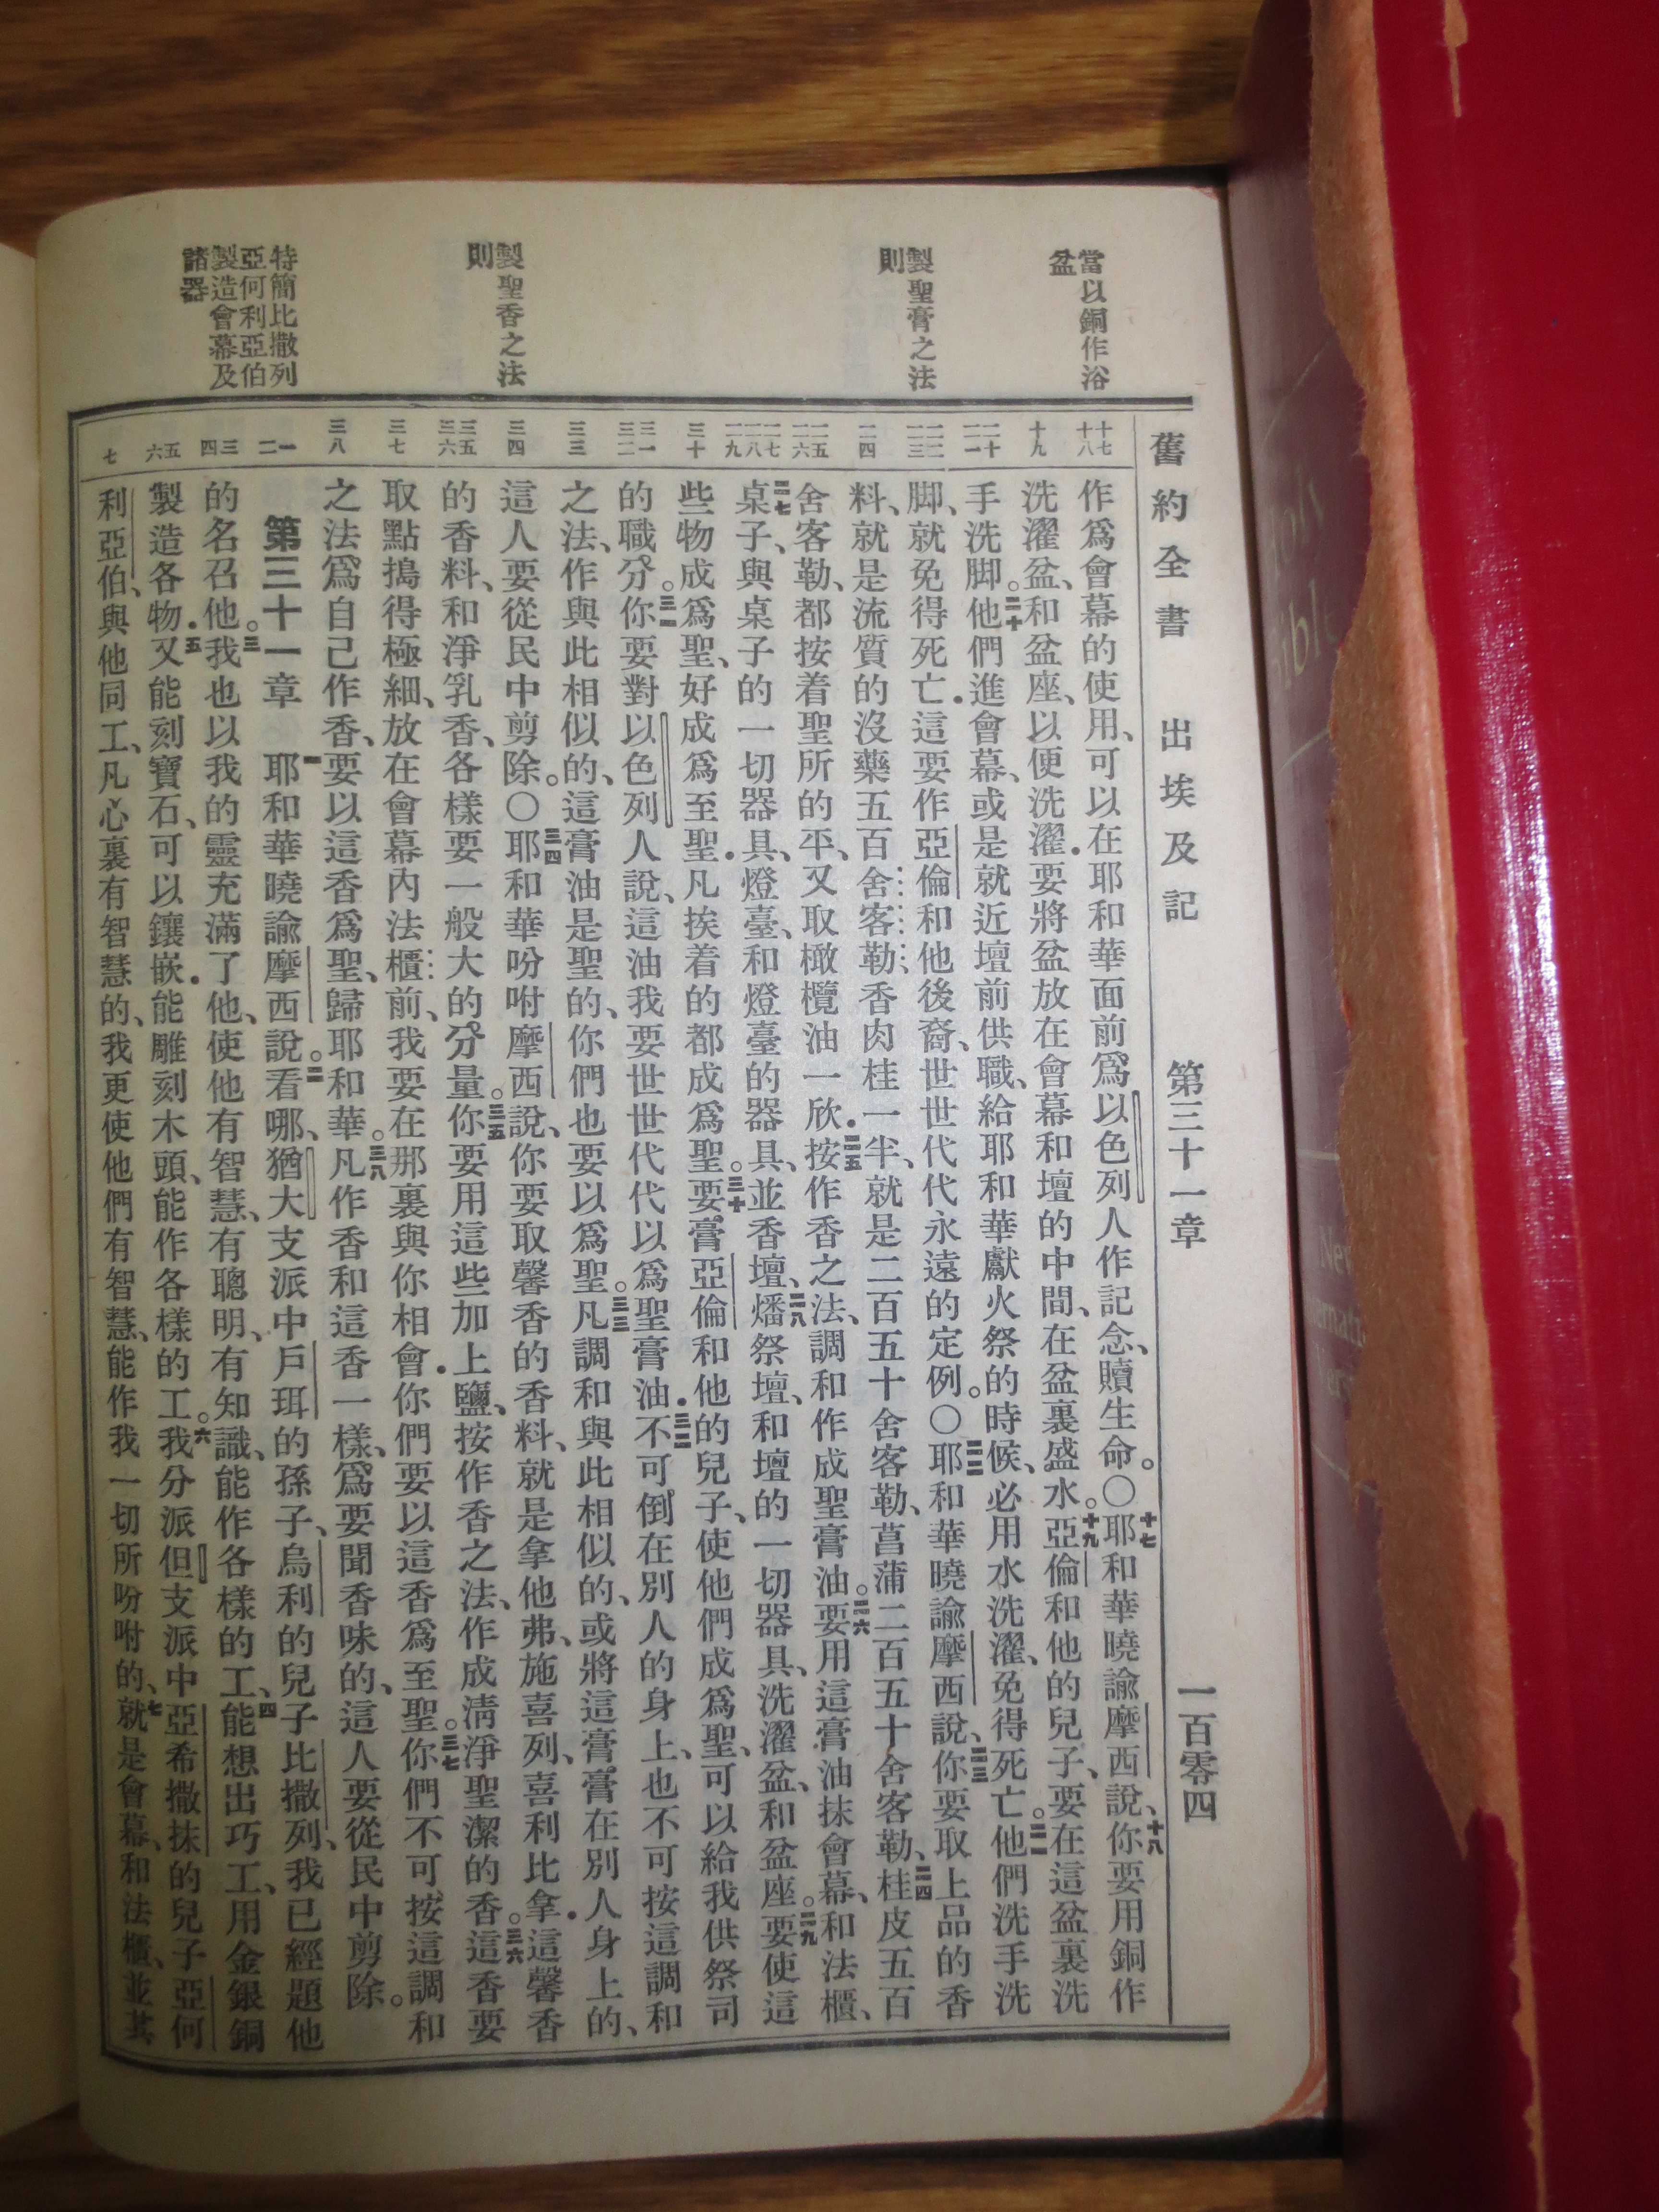 舊約全書 出埃及記 第三十一章 一百零四
當以銅作浴
盆
製聖膏之法
則
製聖香之法
則
特簡比撒列
亞何利亞伯
製造會幕及
諸器
十七 十八
十九
二十 二一
二二 二三
二四
二五 二六
二七 二八 二九
三十
三一 三二
三三
三四
三五 三六
三七
三八
一 二
三 四
五 六
七
作爲會幕的使用、可以在耶和華面前爲以色列人作記念、贖生命。〇十七耶和華曉諭摩西說、十八你要用銅作
洗濯盆、和盆座、以便洗濯．要將盆放在會幕和壇的中間、在盆裏盛水。十九亞倫和他的兒子、要在這盆裏洗
手洗脚。二十他們進會幕、或是就近壇前供職、給耶和華獻火祭的時候、必用水洗濯、免得死亡。二一他們洗手洗
脚、就免得死亡．這要作亞倫和他後裔、世世代代永遠的定例。〇二二耶和華曉諭摩西說、二三你要取上品的香
料、就是流質的沒藥五百舍客勒、香肉桂一半、就是二百五十舍客勒、菖蒲二百五十舍客勒、二四桂皮五百
舍客勒、都按着聖所的平、又取橄欖油一欣．二五按作香之法、調和作成聖膏油。二六要用這膏油抹會幕、和法櫃、
二七桌子、與桌子的一切器具、燈臺、和燈臺的器具、並香壇、二八燔祭壇、和壇的一切器具、洗濯盆、和盆座。二九要使這
些物成爲聖、好成爲至聖．凡挨着的都成爲聖。三十要膏亞倫和他的兒子、使他們成爲聖、可以給我供祭司
的職分。三一你要對以色列人說、這油我要世世代代以爲聖膏油．三二不可倒在別人的身上、也不可按這調和
之法、作與此相似的、這膏油是聖的、你們也要以爲聖。三三凡調和與此相似的、或將這膏膏在別人身上的、
這人要從民中剪除。〇三四耶和華吩咐摩西說、你要取馨香的香料、就是拿他弗、施喜列、喜利比拿．這馨香
的香料、和淨乳香、各樣要一般大的分量。三五你要用這些加上鹽、按作香之法、作成淸淨聖潔的香。三六這香要
取點搗得極細、放在會幕內法櫃前、我要在那裏與你相會．你們要以這香爲至聖。三七你們不可按這調和
之法爲自己作香、要以這香爲聖、歸耶和華。三八凡作香和這香一樣、爲要聞香味的、這人要從民中剪除。
第三十一章 一耶和華曉諭摩西說。二看哪、猶大支派中戶珥的孫子、烏利的兒子比撒列、我已經題他
的名召他。三我也以我的靈充滿了他、使他有智慧、有聰明、有知識、能作各樣的工、四能想出巧工、用金銀銅
製造各物．五又能刻寶石、可以鑲嵌．能雕刻木頭、能作各樣的工。六我分派但支派中亞希撒抹的兒子亞何
利亞伯、與他同工、凡心裏有智慧的、我更使他們有智慧、能作我一切所吩咐的、七就是會幕、和法櫃、並其